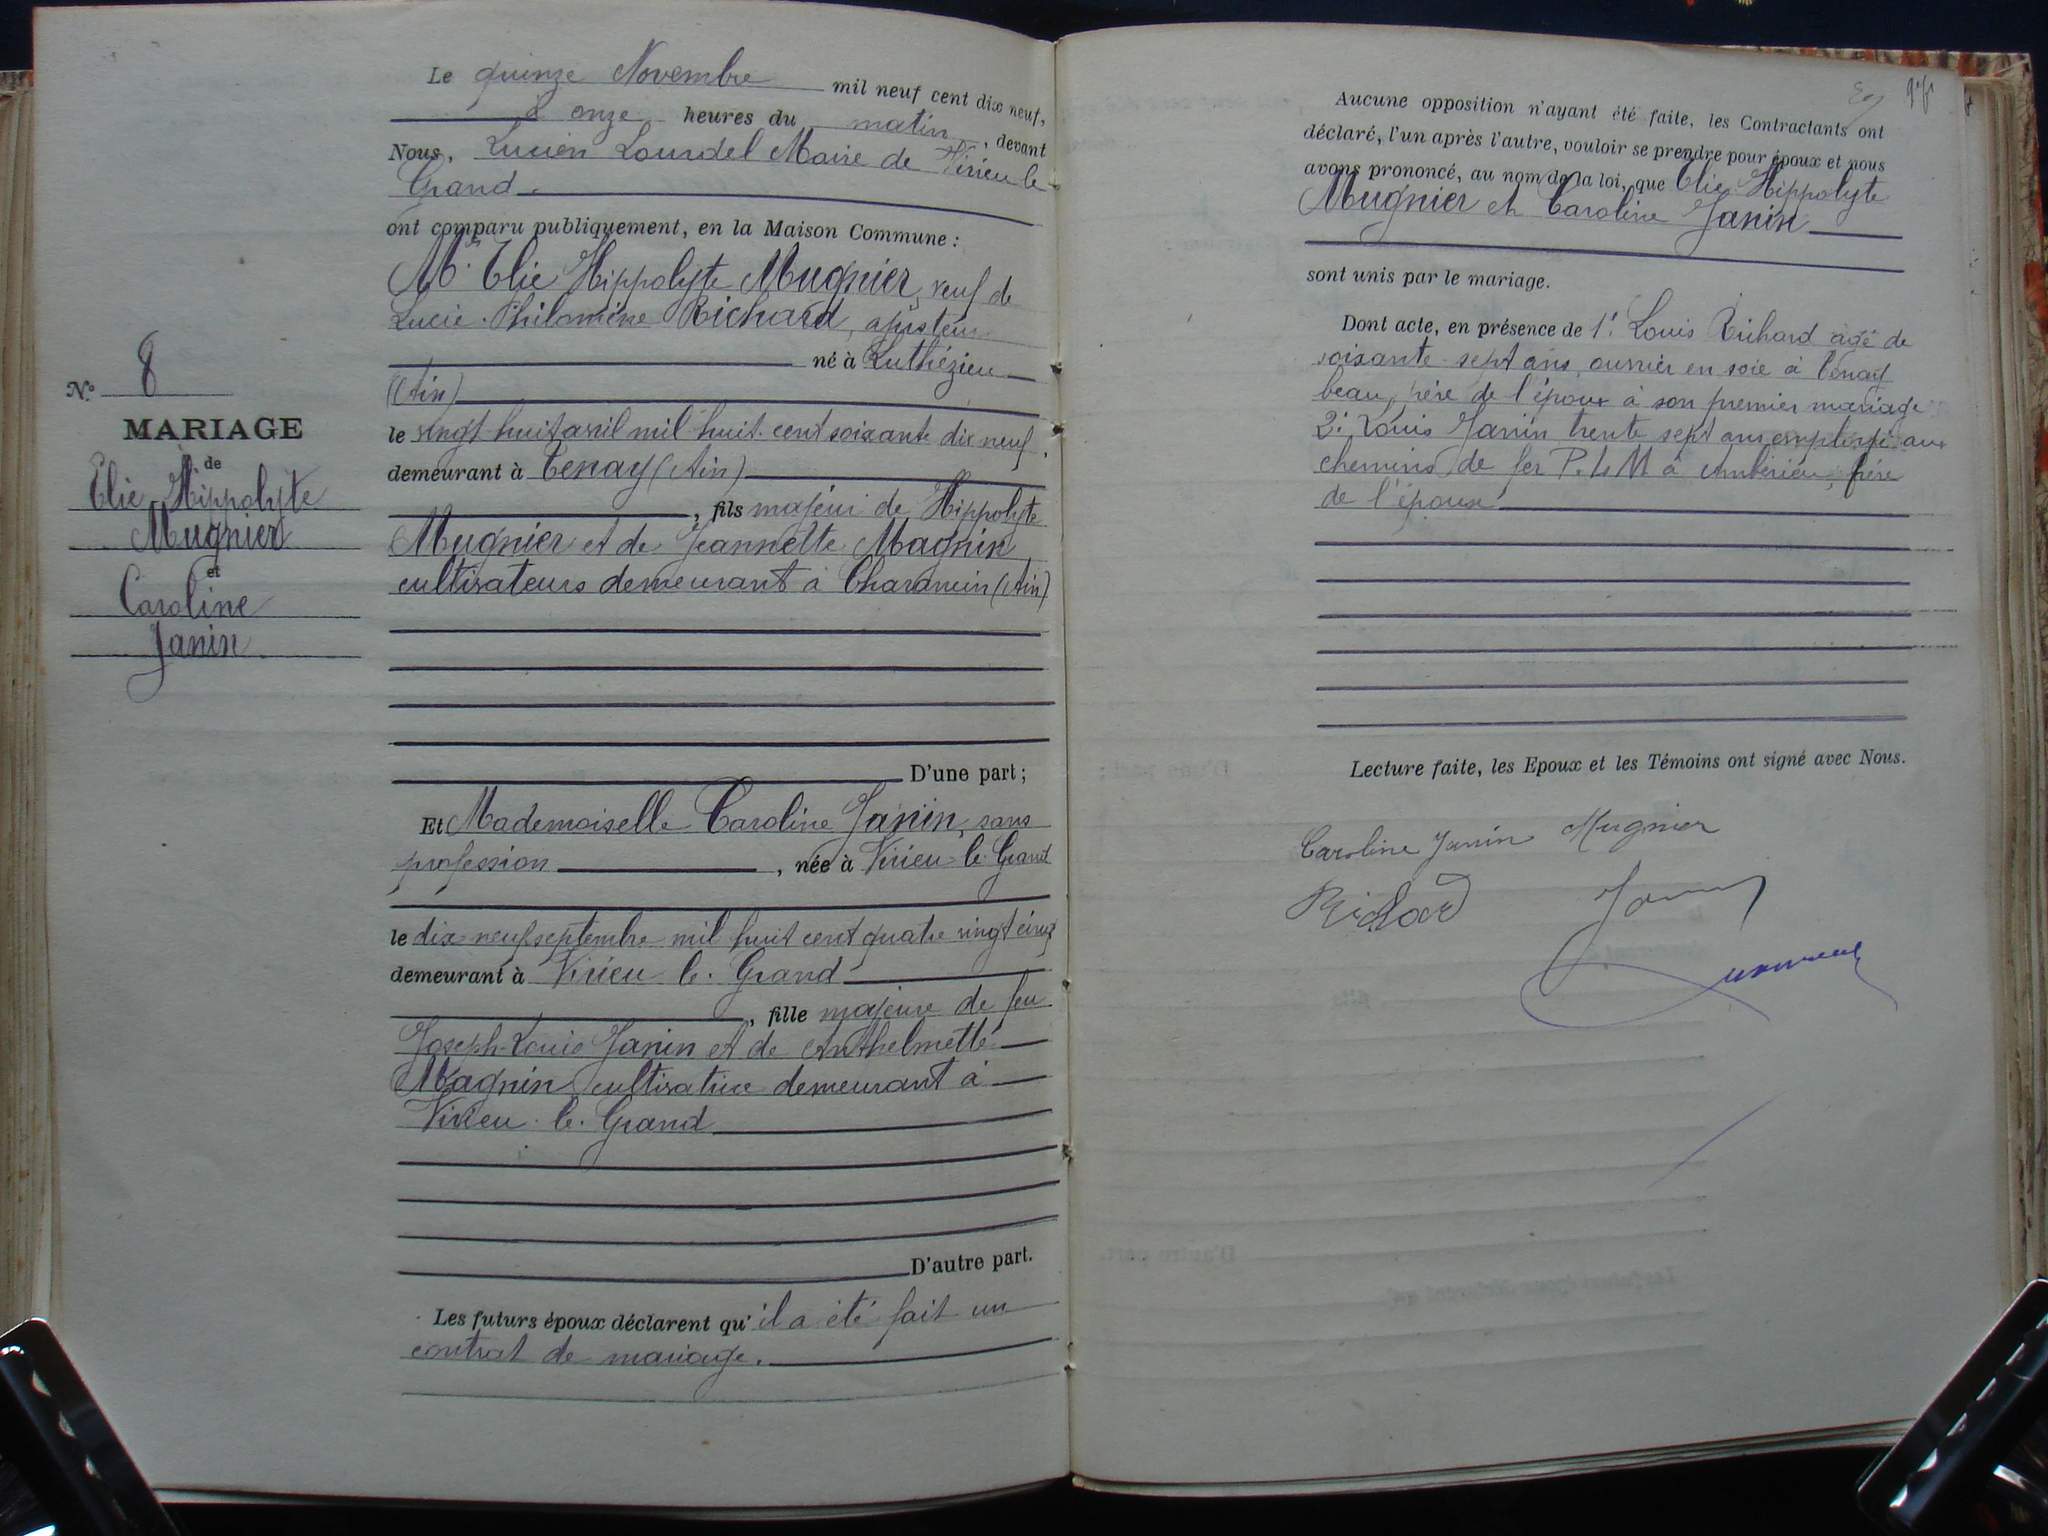 Le quinze Novembre mil neuf cent dix neuf,
à onze heures du matin, devant
Nous, Lucien Lourdel Maire de Virieu le
Grand
ont comparu publiquement, en la Maison Commune :
Mr. Elie Hippolyte Mugnier, veuf de
Lucie-Philomène Richard, ajusteur
né à Luthézieu
(Ain)
le vingt-huit avril mil huit-cent soixante dix neuf,
demeurant à Tenay (Ain)
, fils majeur de Hippolyte
Mugnier et de Jeannette Magnin
cultivateurs demeurant à Charancin (Ain)
D'une part ;
N° 8
MARIAGE
de
Elie Hippolyte
Mugnier
et
Caroline
Janin
Et Mademoiselle Caroline Janin, sans
profession, née à Virieu-le-Grand
le dix-neuf septembre mil huit cent quatre vingt cinq
demeurant à Virieu-le-Grand
, fille majeure de feu
Joseph-Louis Janin et de Anthelmette
Magnin cultivatrice demeurant à
Virieu-le-Grand
D'autre part.
Les futurs époux déclarent qu'il a été fait un
contrat de mariage.
Aucune opposition n'ayant été faite, les Contractants ont
déclaré, l'un après l'autre, vouloir se prendre pour époux et nous
avons prononcé, au nom de la loi, que Elie Hippolyte
Mugnier et Caroline Janin
sont unis par le mariage.
Dont acte, en présence de 1° Louis Richard agé de
soixante-sept ans, ouvrier en soie à Tenay
beau-père de l'époux à son premier mariage
2° Louis Janin trente sept ans employé aux
chemins de fer P.L.M à Ambérieu, frère
de l'épouse
Lecture faite, les Epoux et les Témoins ont signé avec Nous.
Caroline Janin Mugnier
Richard Janin